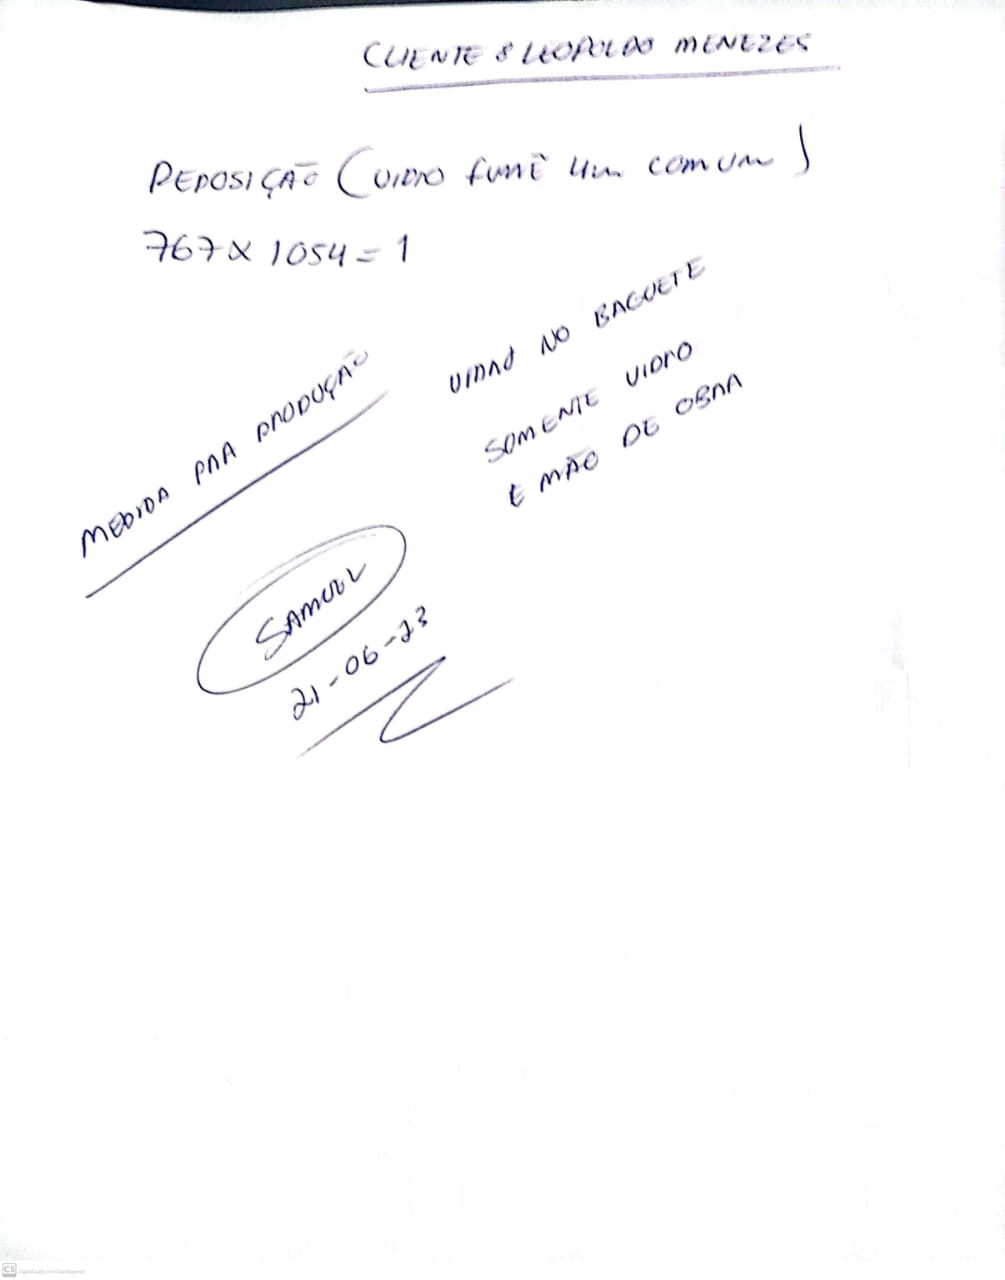 CLIENTE: LEOPOLDO MENEZES
REPOSIÇÃO (VIDRO fumê 4m comum)
767 x 1054 = 1
VIDRO NO BAGUETE
SOMENTE VIDRO
E MÃO DE OBRA
MEDIDA PRA PRODUÇÃO
SAMUEL
21-06-23
CS Digitalizado com CamScanner